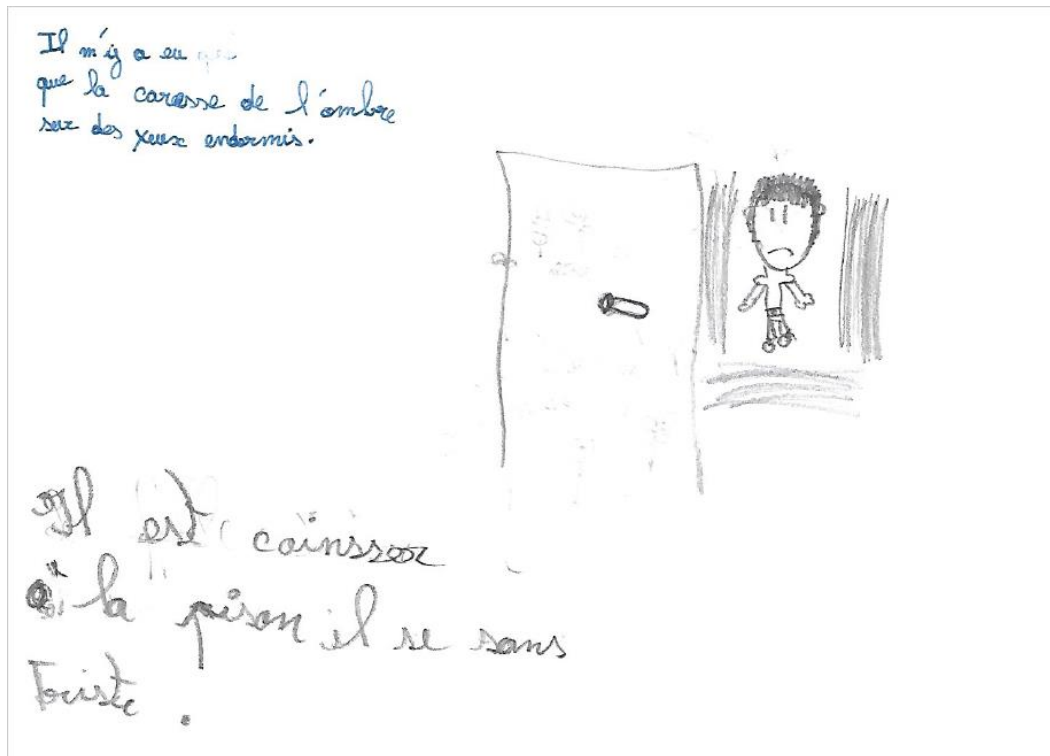 Il n'y a eu
que la caresse de l'ombre
sur des yeux endormis.
Il est coinsser
à la pison il se sans
triste.